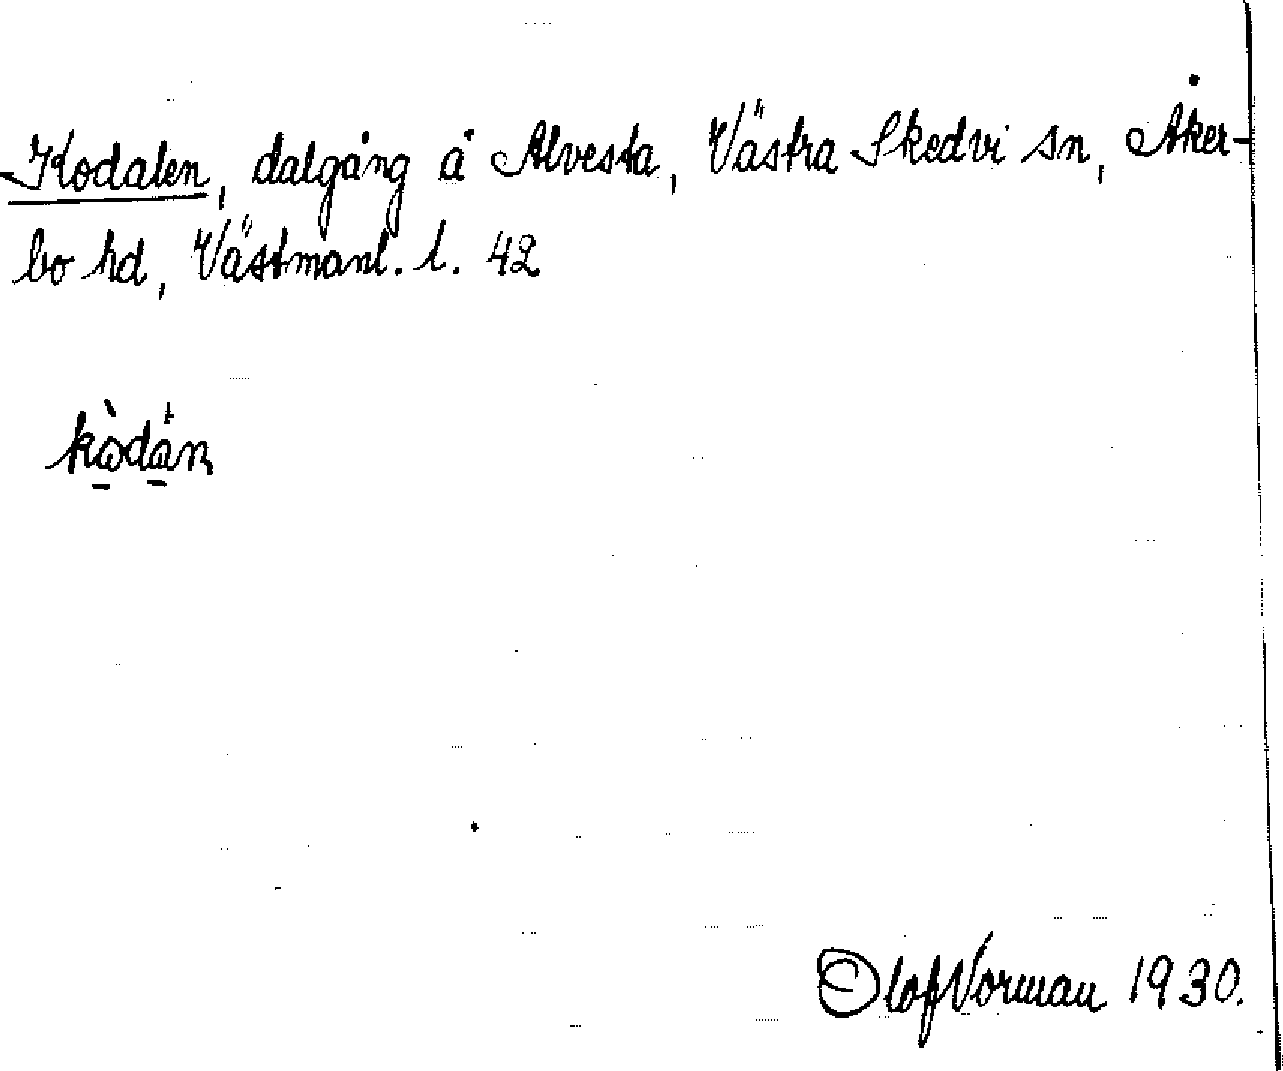 Kodalen, dalgång å Alvesta, Västra Skedvi sn, Åker-
bo hd, Västmanl. l. 42
kòdán
Olof Norman 1930.